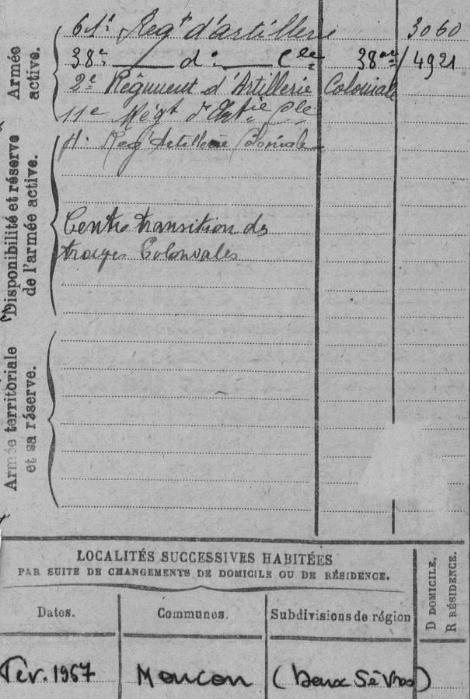 Armée active.
61e Regt d'artillerie 3060
38e — do — Cle 38ac 4921
2e Régiment d'Artillerie Coloniale
11e Régt d'Artie Cle
Disponibilité et réserve de l'armée active.
Reg Artillerie Coloniale
Centre transition des
troupes Coloniales
Armée territoriale et sa réserve.
LOCALITÉS SUCCESSIVES HABITÉES
PAR SUITE DE CHANGEMENTS DE DOMICILE OU DE RÉSIDENCE.
D DOMICILE,
R RÉSIDENCE.
Dates. Communes. Subdivisions de région
Fév. 1967 Moncon (Deux Sèvres)